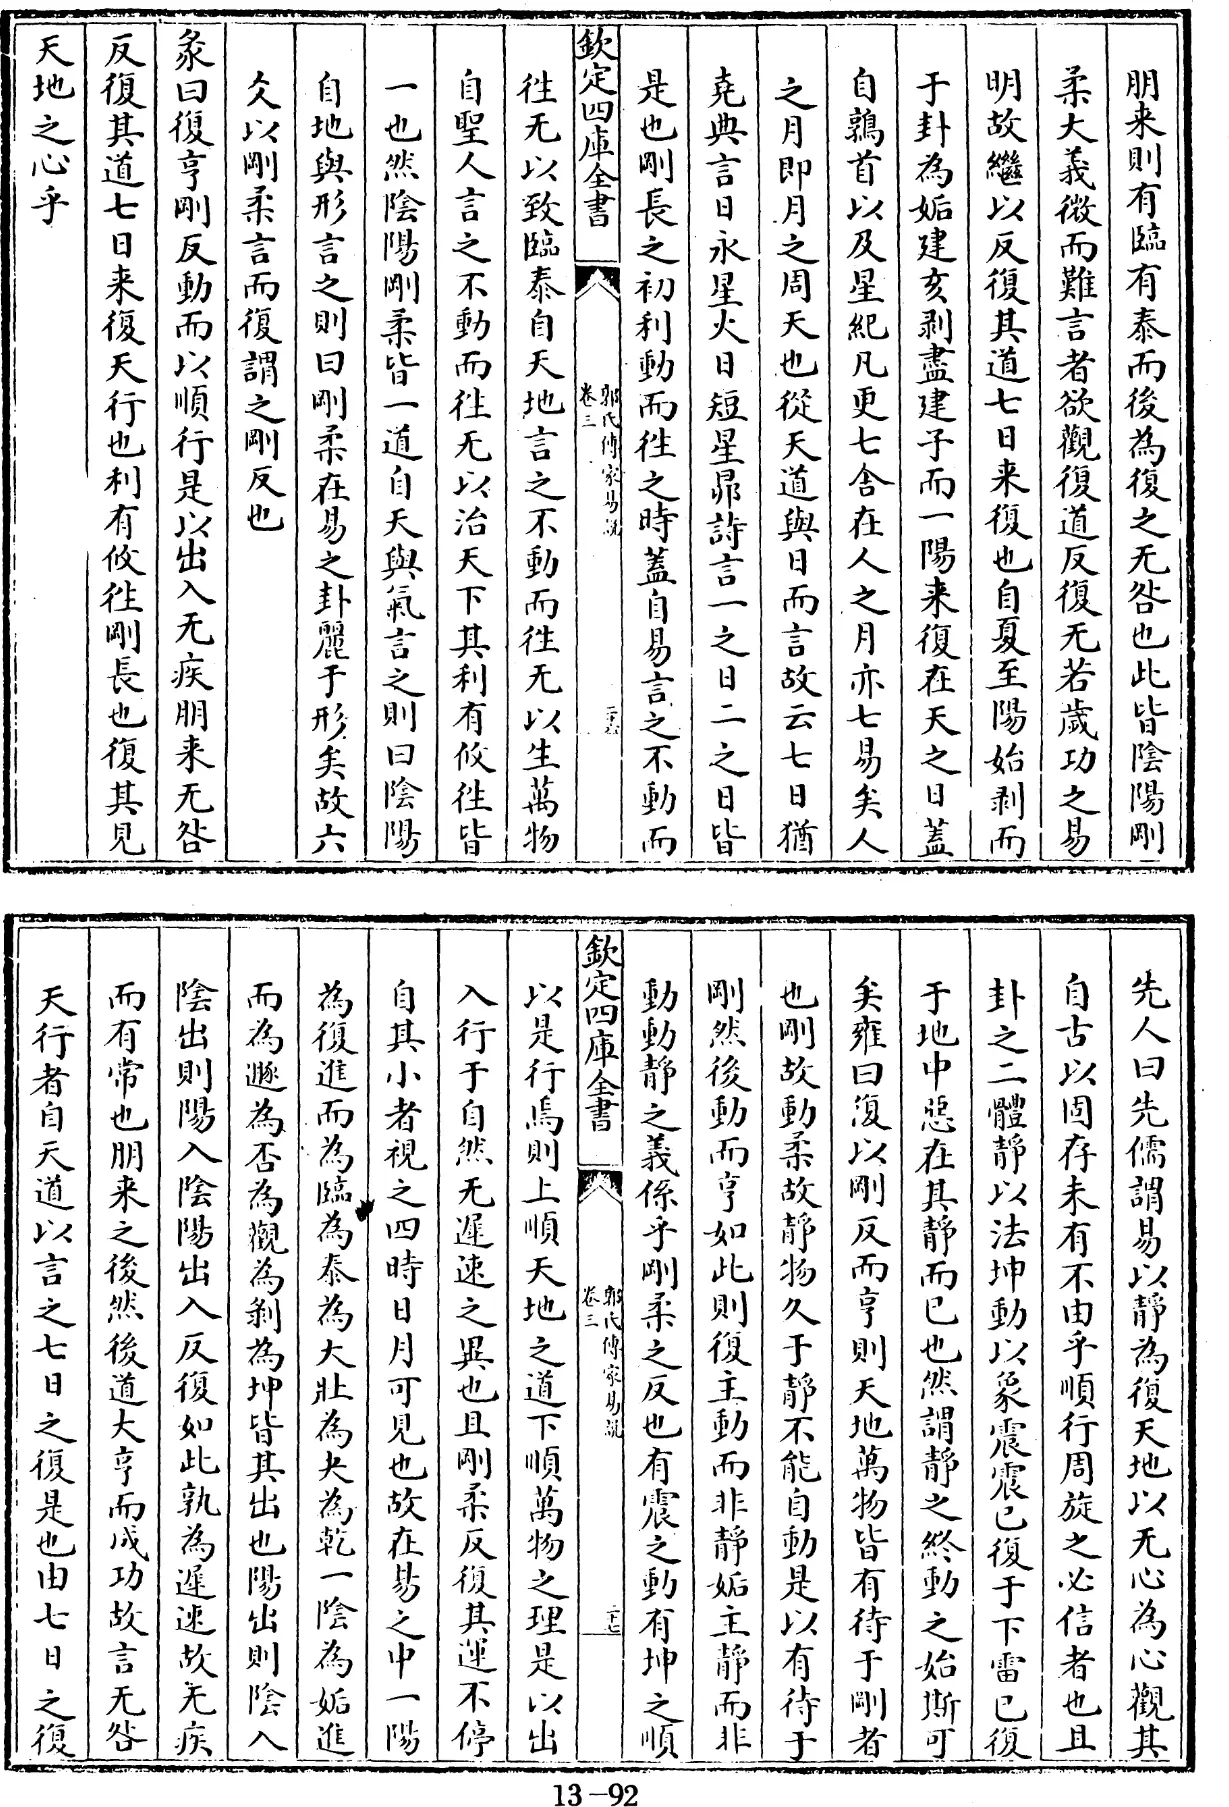 朋来則有臨有泰而後為復之无咎也此皆陰陽剛
柔大義微而難言者欲觀復道反復无若歲功之易
明故繼以反復其道七日来復也自夏至陽始剥而
于卦為姤建亥剥盡建子而一陽来復在天之日蓋
自鶉首以及星紀凡更七舍在人之月亦七易矣人
之月即月之周天也從天道與日而言故云七日猶
堯典言日永星火日短星昴詩言一之日二之日皆
是也剛長之初利動而徃之時蓋自易言之不動而
欽定四庫全書
郭氏傳家易說
卷三
二十六
徃无以致臨泰自天地言之不動而徃无以生萬物
自聖人言之不動而徃无以治天下其利有攸徃皆
一也然陰陽剛柔皆一道自天與氣言之則曰陰陽
自地與形言之則曰剛柔在易之卦麗于形矣故六
爻以剛柔言而復謂之剛反也
彖曰復亨剛反動而以順行是以出入无疾朋来无咎
反復其道七日来復天行也利有攸徃剛長也復其見
天地之心乎
先人曰先儒謂易以靜為復天地以无心為心觀其
自古以固存未有不由乎順行周旋之必信者也且
卦之二體靜以法坤動以象震震已復于下雷已復
于地中惡在其靜而已也然謂靜之終動之始斯可
矣雍曰復以剛反而亨則天地萬物皆有待于剛者
也剛故動柔故靜物久于靜不能自動是以有待于
剛然後動而亨如此則復主動而非靜姤主靜而非
動動靜之義係乎剛柔之反也有震之動有坤之順
欽定四庫全書
郭氏傳家易說
卷三
二十七
以是行焉則上順天地之道下順萬物之理是以出
入行于自然无遲速之異也且剛柔反復其運不停
自其小者視之四時日月可見也故在易之中一陽
為復進而為臨為泰為大壯為夬為乾一陰為姤進
而為遯為否為觀為剥為坤皆其出也陽出則陰入
陰出則陽入陰陽出入反復如此孰為遲速故无疾
而有常也朋来之後然後道大亨而成功故言无咎
天行者自天道以言之七日之復是也由七日之復
13-92